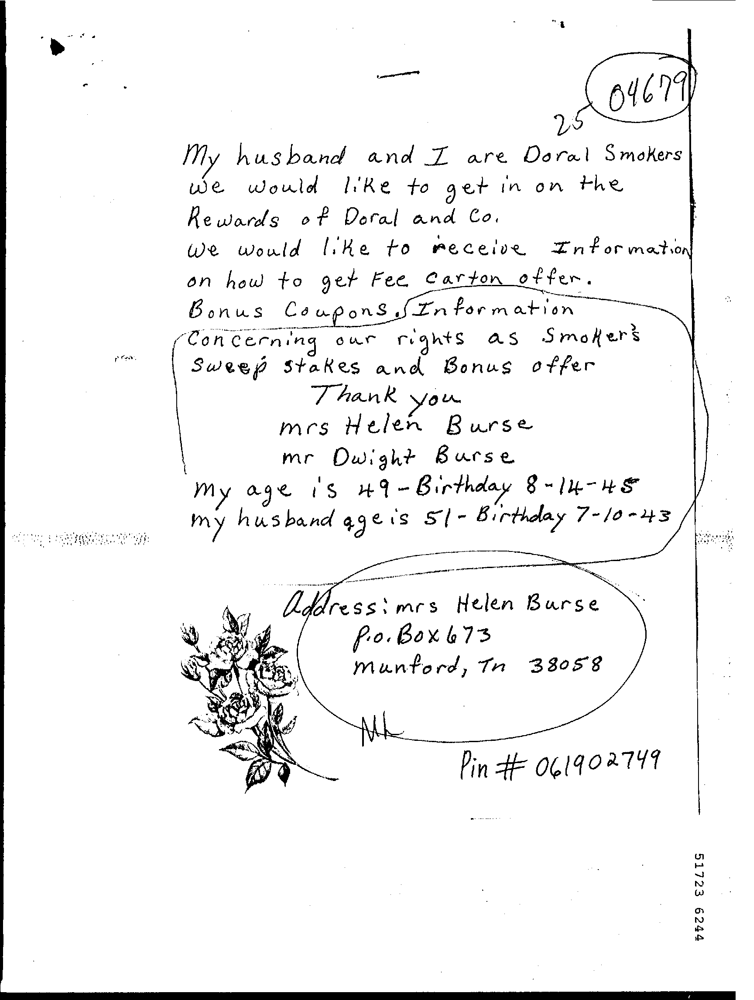 04679
25
My husband and I are Doral Smokers
we would like to get in on the
Rewards of Doral and Co.
We would like to receive Information
on how to get Fee Carton offer.
Bonus Coupons. Information
Concerning our rights as Smoker's
Sweep stakes and Bonus offer
Thank you
mrs Helen Burse
mr Dwight Burse
my age is 49-Birthday 8-14-45
my husband age is 51-Birthday 7-10-43
Address: mrs Helen Burse
P.O. Box 673
munford, Tn 38058
Pin # 061902749
51723 6244